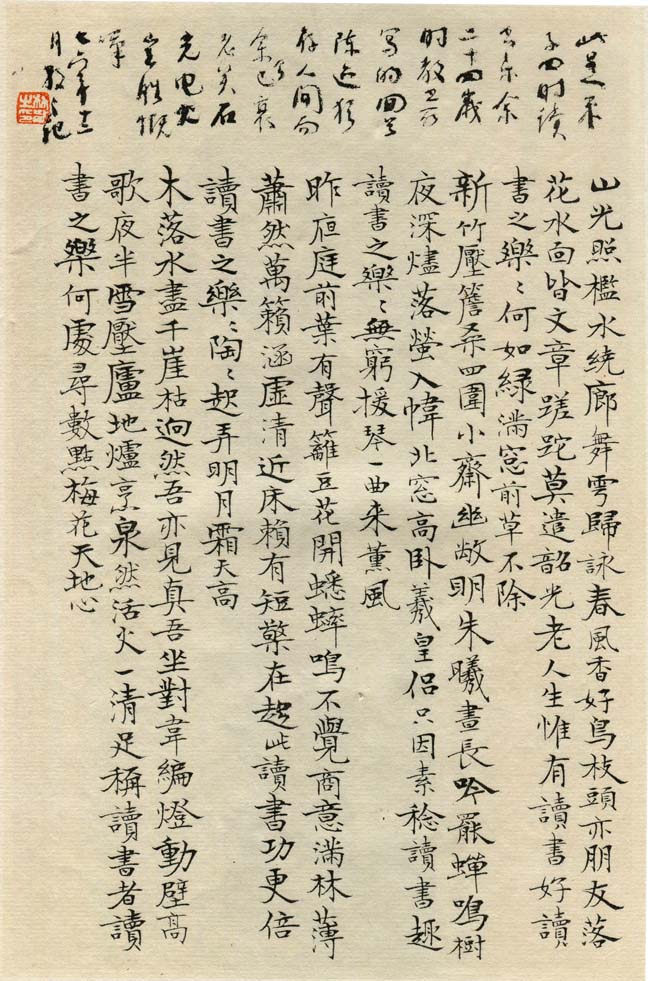 山光照檻水繞廊舞雩歸詠春風香好鳥枝頭亦朋友落
花水面皆文章蹉跎莫遣韶光老人生惟有讀書好讀
書之樂〻何如綠滿窓前草不除
新竹壓簷桑四圍小齋幽敞明朱曦晝長吟罷蟬鳴樹
夜深燼落螢入幃北窓高卧羲皇侶只因素稔讀書趣
讀書之樂〻無窮援琴一曲来薰風
昨夜庭前葉有聲籬豆花開蟋蟀鳴不覺商意滿林薄
蕭然萬籟涵虛清近床賴有短檠在趂此讀書功更倍
讀書之樂〻陶〻起弄明月霜天高
木落水盡千崖枯迥然吾亦見真吾坐對韋編燈動壁高
歌夜半雪壓廬地爐烹泉然活火一清足稱讀書者讀
書之樂何處尋數點梅花天地心
此是朱
子四时读
书乐余
二十四歲
时教
写的回首
陈迹犹
存人间而
余已衰
老矣石
光电火
岂胜慨
嘆
七六年十二
月散之记